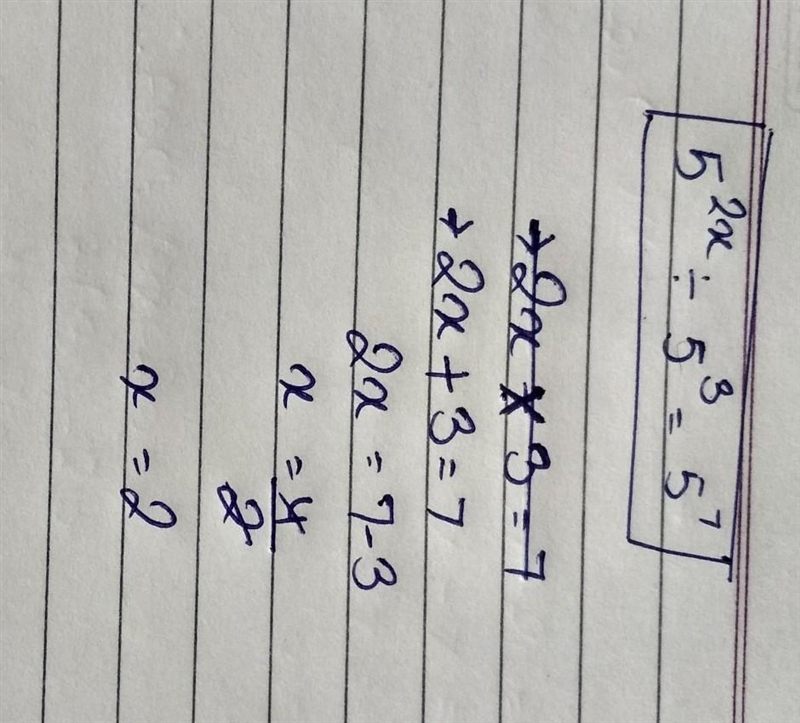 5^2x ÷ 5^3 = 5^7
→ 2x × 3 = 7
→ 2x + 3 = 7
2x = 7 - 3
x = 4/2
x = 2